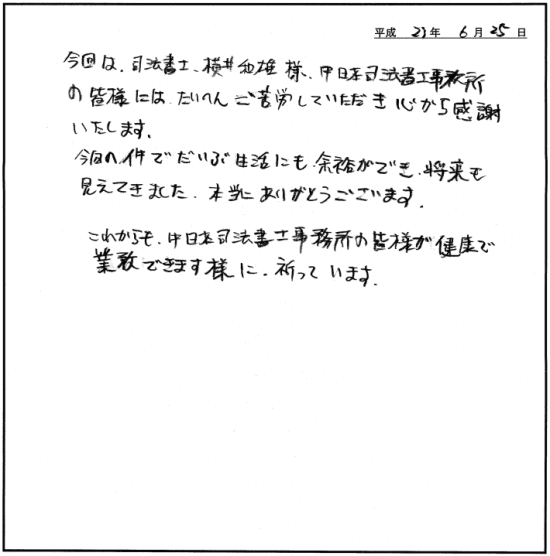 平成 23年 6月 25日
今回は、司法書士、横井知雄 様、中日本司法書士事務所
の皆様には、たいへんご苦労していただき 心から感謝
いたします。
今回の件でだいぶ生活にも余裕ができ、将来も
見えてきました。本当にありがとうございます。
これからも、中日本司法書士事務所の皆様が健康で
業務できます様に、祈っています。